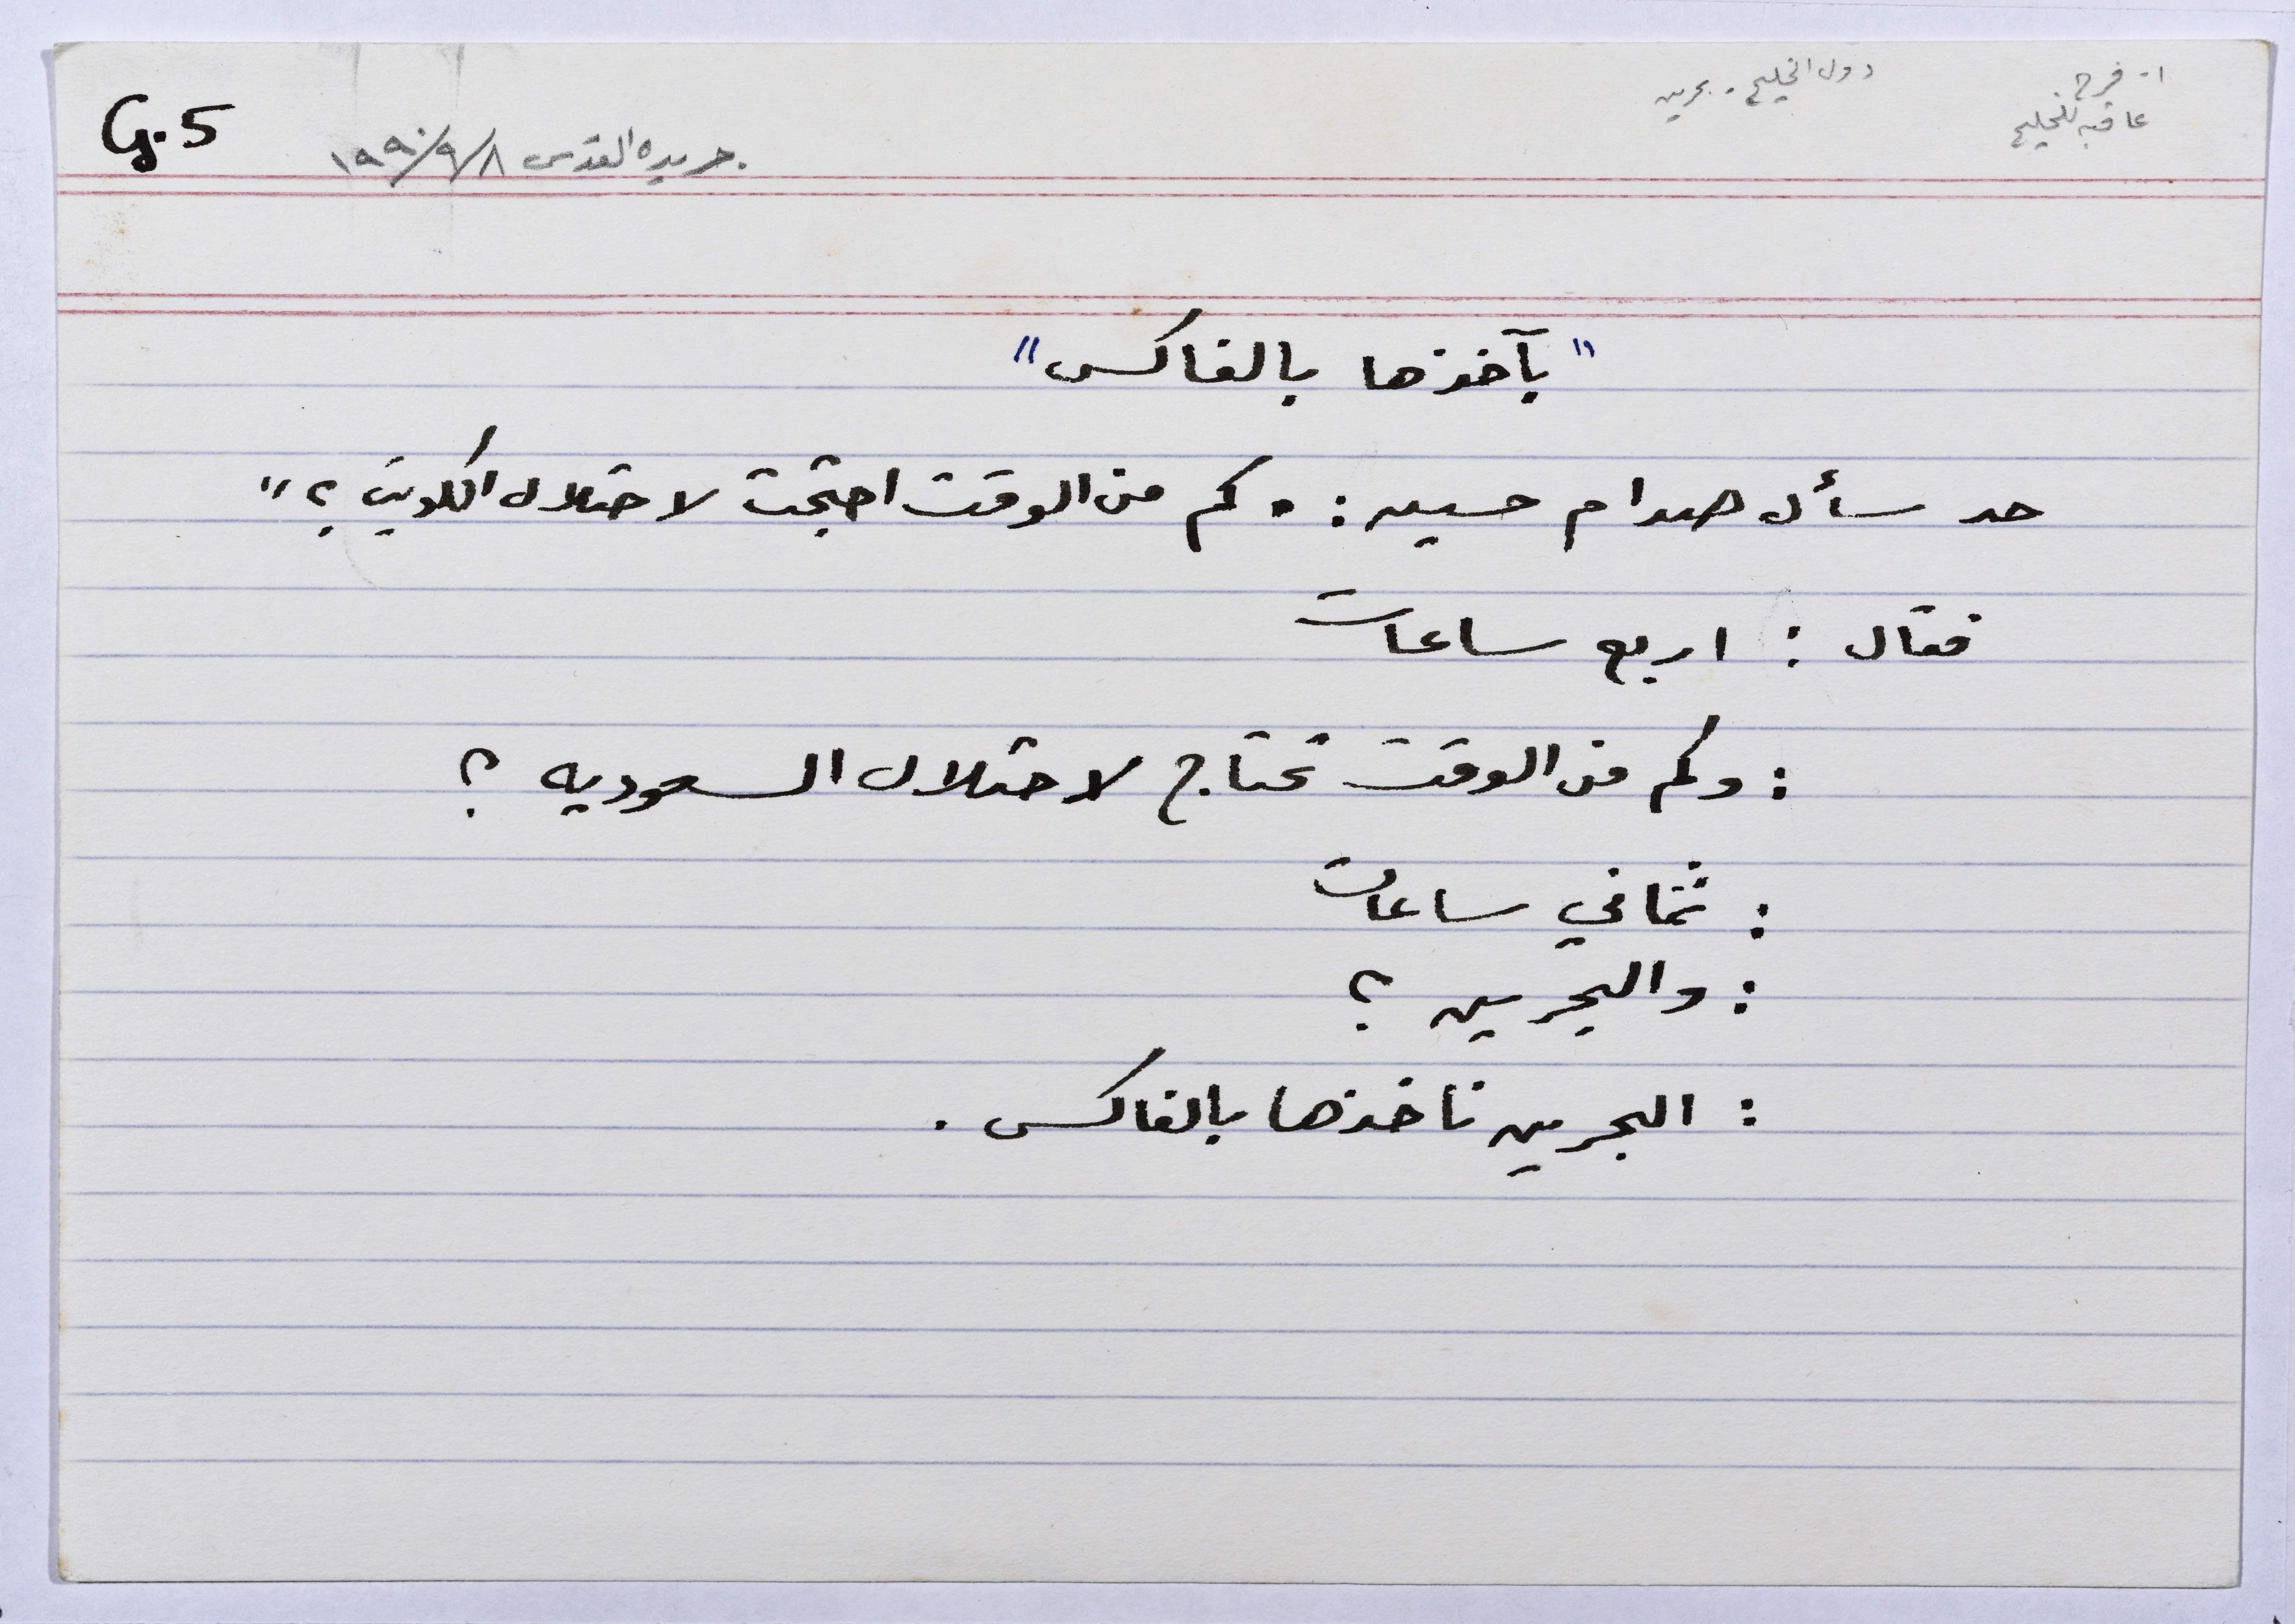 ا- فرح
دول الخليج - بحرين
عاقبه للخليج
G.5
جريده القدس ١٩٩٠/٩/٨
"بآخذها بالفاكس"
حد سأل صدام حسين: "كم من الوقت احتجت لاحتلال الكويت؟"
فقال: اربع ساعات
: وكم من الوقت تحتاج لاحتلال السعوديه؟
: ثماني ساعات
: والبحرين؟
: البحرين ناخذها بالفاكس.